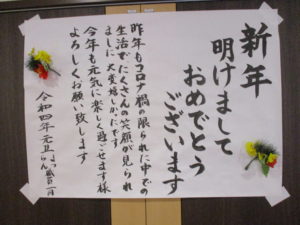 新年
明けまして
おめでとう
ございます
昨年もコロナ禍の限られた中での
生活でたくさんの笑顔が見られ
ましに大変嬉しかったです
今年も元気に楽しく過ごせます様
よろしくお願い致します
令和四年 元旦